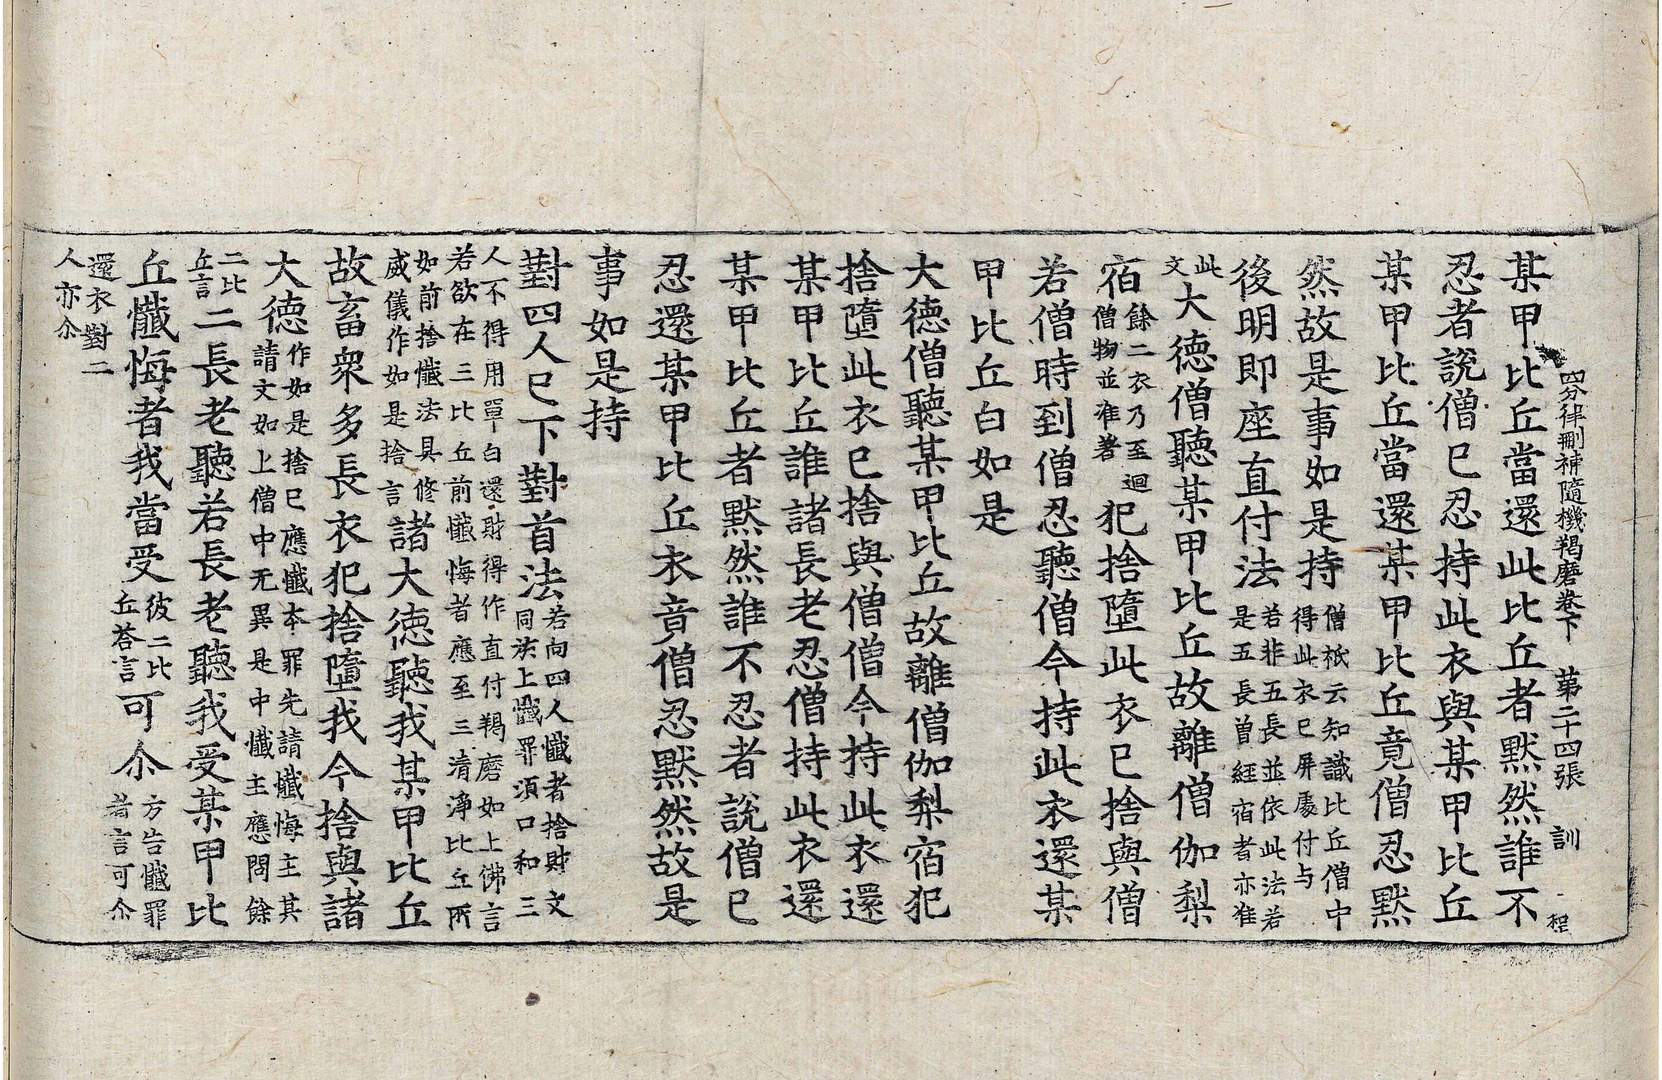 四分律刪補隨機羯磨卷下 第二十四張 訓
某甲比丘當還此比丘者默然誰不
忍者說僧已忍持此衣與某甲比丘
某甲比丘當還某甲比丘竟僧忍默
然故是事如是持
僧祇云知識比丘僧中
得此衣已屏處付与
後明即座直付法
若非五長並依此法若
是五長曾經宿者亦准
此
文
大德僧聽某甲比丘故離僧伽梨
宿
餘二衣乃至迴
僧物並准著
犯捨墮此衣已捨與僧
若僧時到僧忍聽僧今持此衣還某
甲比丘白如是
大德僧聽某甲比丘故離僧伽梨宿犯
捨墮此衣已捨與僧僧今持此衣還
某甲比丘誰諸長老忍僧持此衣還
某甲比丘者默然誰不忍者說僧已
忍還某甲比丘衣竟僧忍默然故是
事如是持
對四人已下對首法
若向四人懺者捨財文
同法上懺罪須口和三
人不得用單白還財得作直付羯磨如上佛言
若欲在三比丘前懺悔者應至三清淨比丘所
如前捨懺法具修
威儀作如是捨言
諸大德聽我某甲比丘
故畜眾多長衣犯捨墮我今捨與諸
大德
作如是捨已應懺本罪先請懺悔主其
請文如上僧中无異是中懺主應問餘
二比
丘言
二長老聽若長老聽我受某甲比
丘懺悔者我當受
彼二比
丘荅言
可尒
方告懺罪
者言可尒
還衣對二
人亦尒